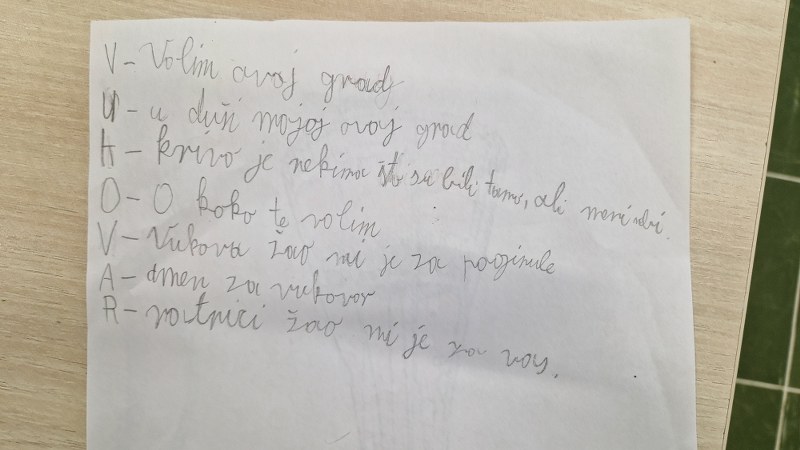 V - Volim ovaj grad
U - u duši mojoj ovaj grad
K - krivo je nekima što su bili tamo, ali meni
O - O koko te volim
V - Vukova žao mi je za poginule
A - amen za vukovor
R - ratnici žao mi je za vas.